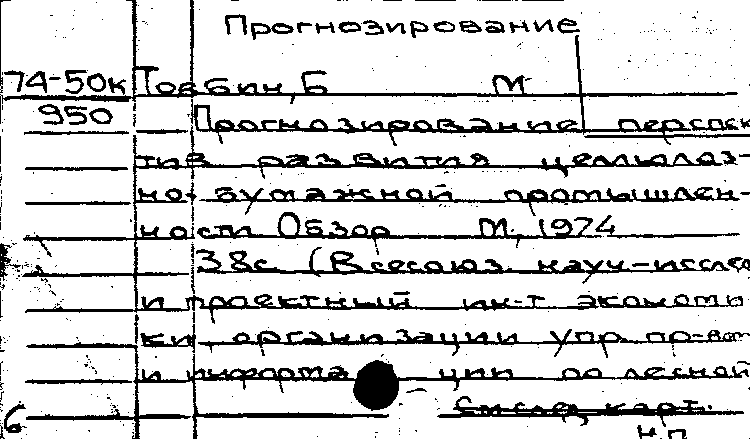 Прогнозирование
74-50к Товбин, Б М
950 Прогнозирование перспек
тив развития целлюлоз-
но-бумажной промышлен-
ности Обзор М., 1974
38с (Всесоюз. науч-исслед
и проектный ин-т экономи
ки, организации упр. пр-вом
и информа ции по лесной
См след. карт.
6 н п